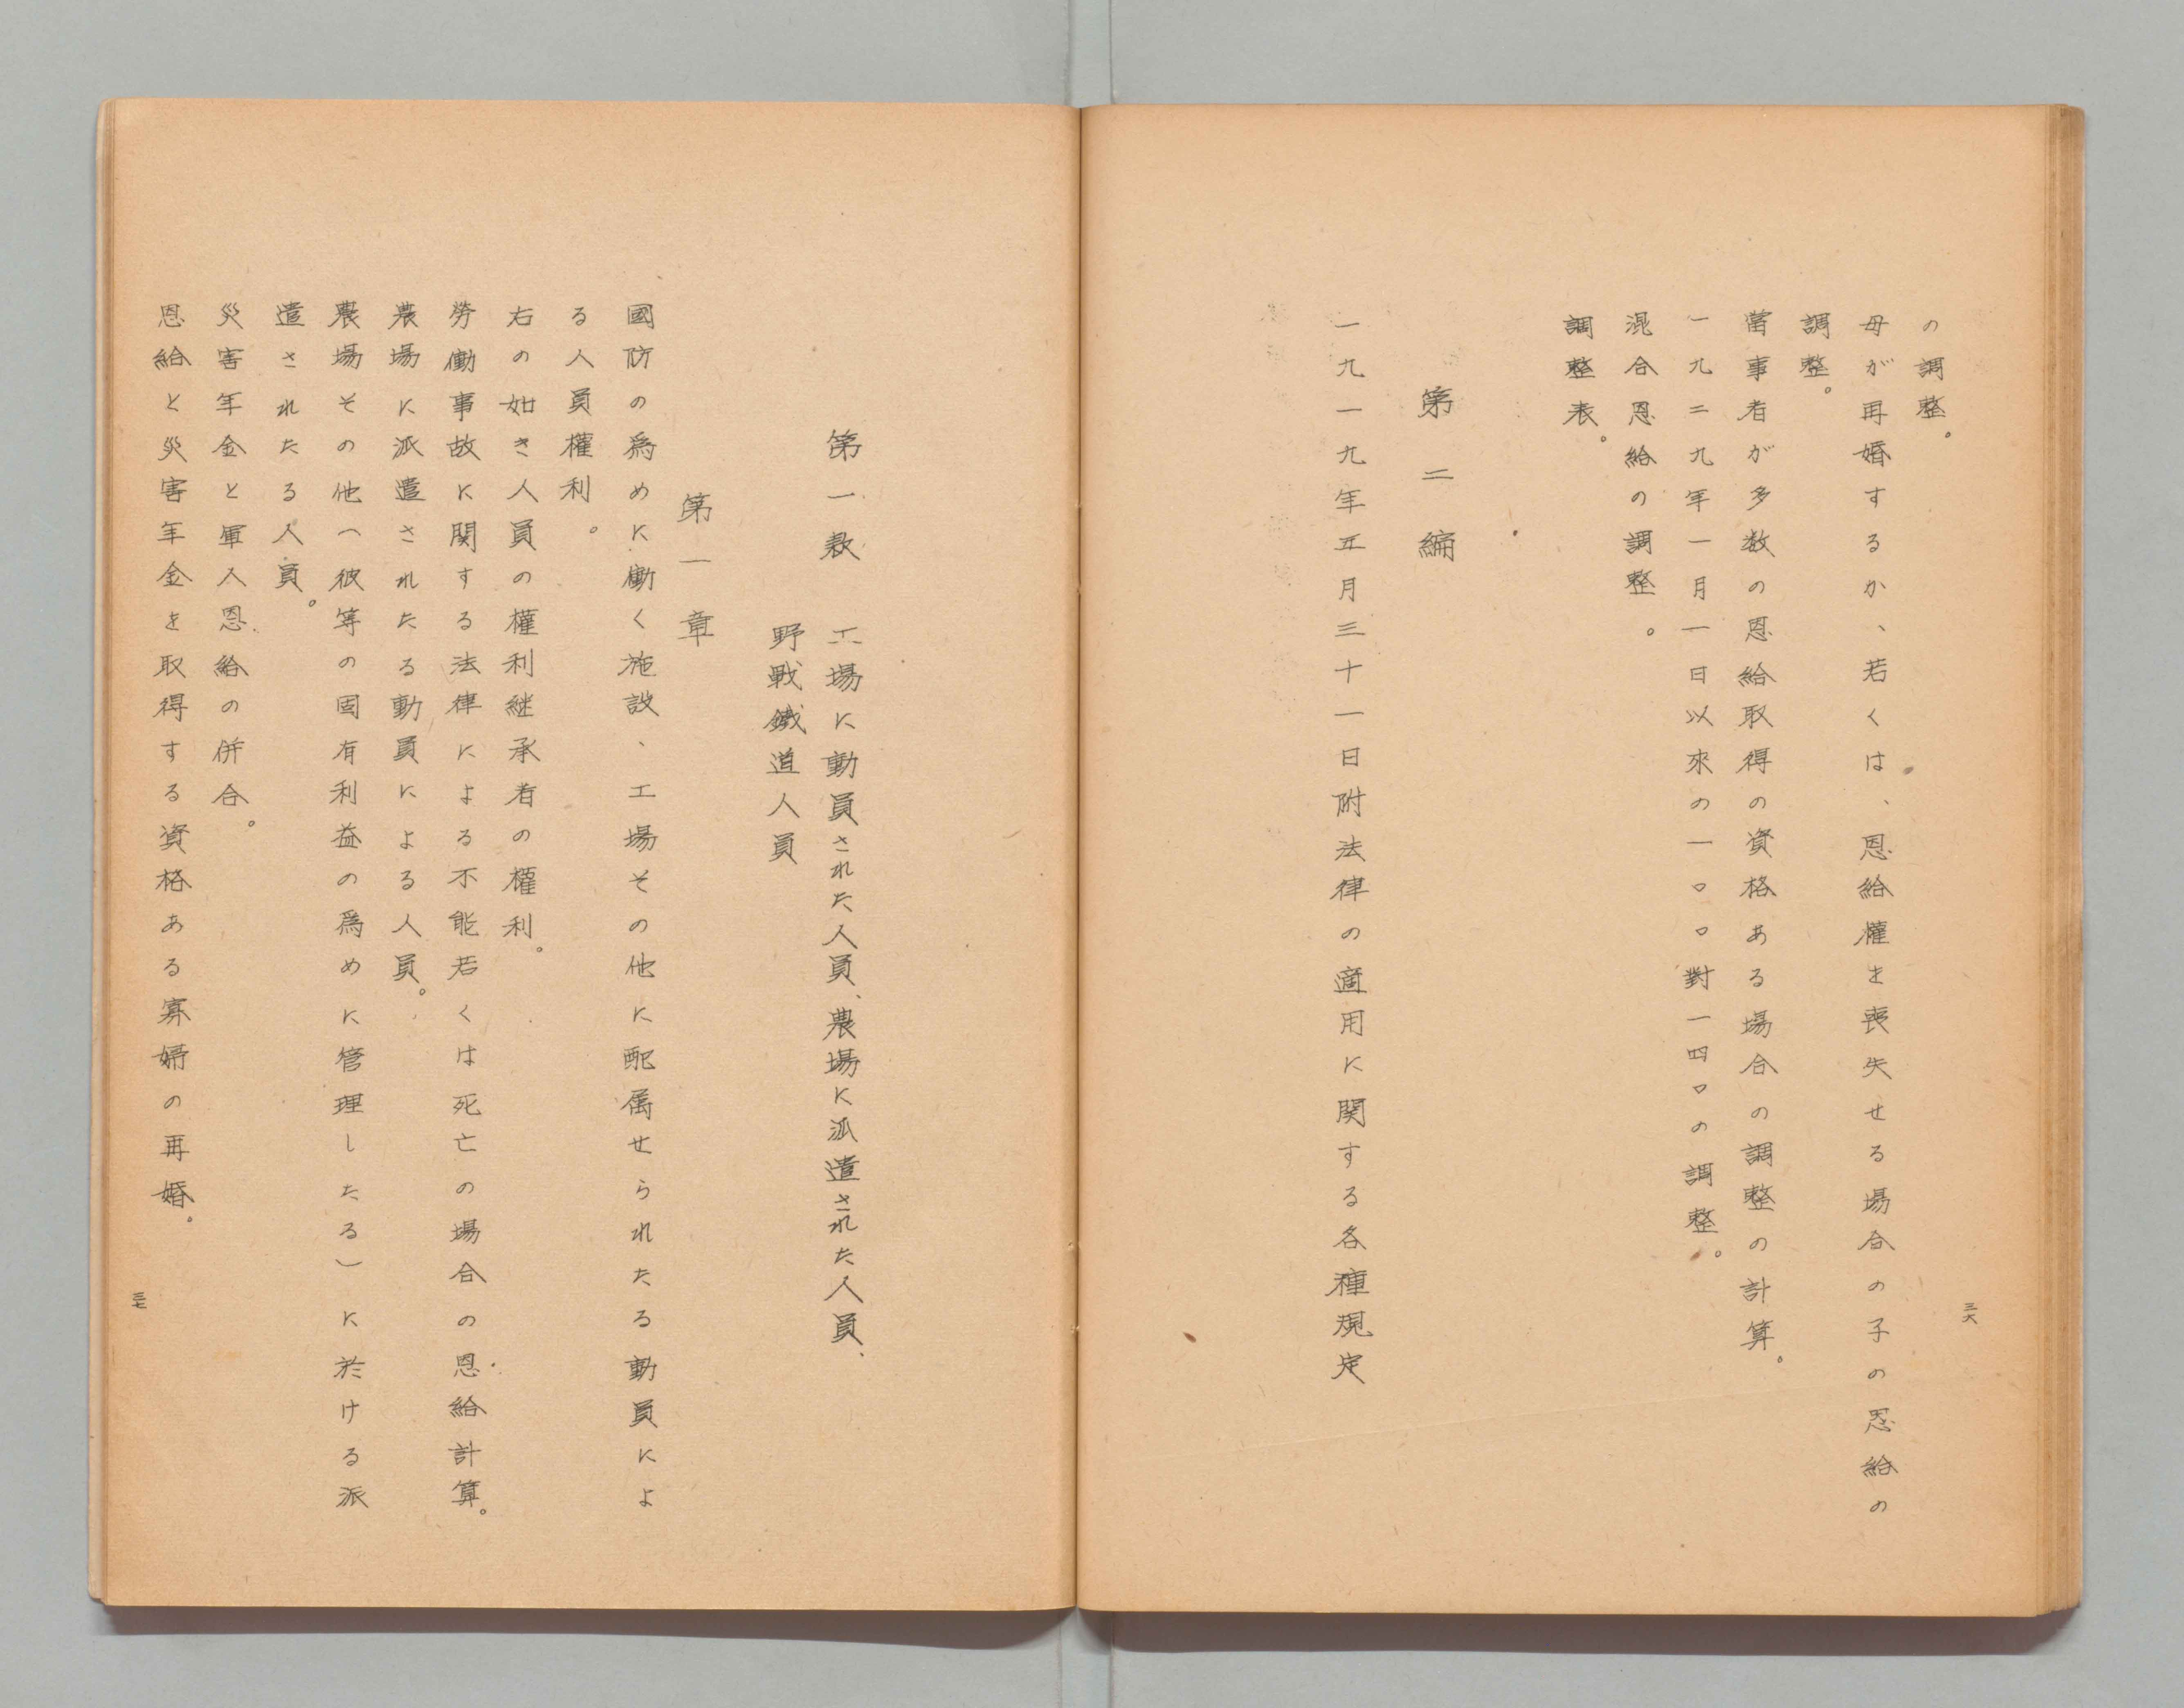 の調整。
母が再婚するか、若くは、恩給權を喪失せる場合の子の恩給の
調整。
當事者が多数の恩給取得の資格ある場合の調整の計算。
一九二九年一月一日以來の一〇〇對一四〇の調整。
混合恩給の調整。
調整表。
第二編
一九一九年五月三十一日附法律の適用に関する各種規定
三六
第一款 工場に動員された人員、農場に派遣された人員、
野戦鐵道人員
第一章
國防の爲めに働く施設、工場その他に配属せられたる動員によ
る人員權利。
右の如き人員の權利継承者の權利。
労働事故に関する法律による不能若くは死亡の場合の恩給計算。
農場に派遣されたる動員による人員。
農場その他(彼等の固有利益の爲めに管理したる)に於ける派
遣されたる人員。
災害年金と軍人恩給の併合。
恩給と災害年金を取得する資格ある寡婦の再婚。
三七